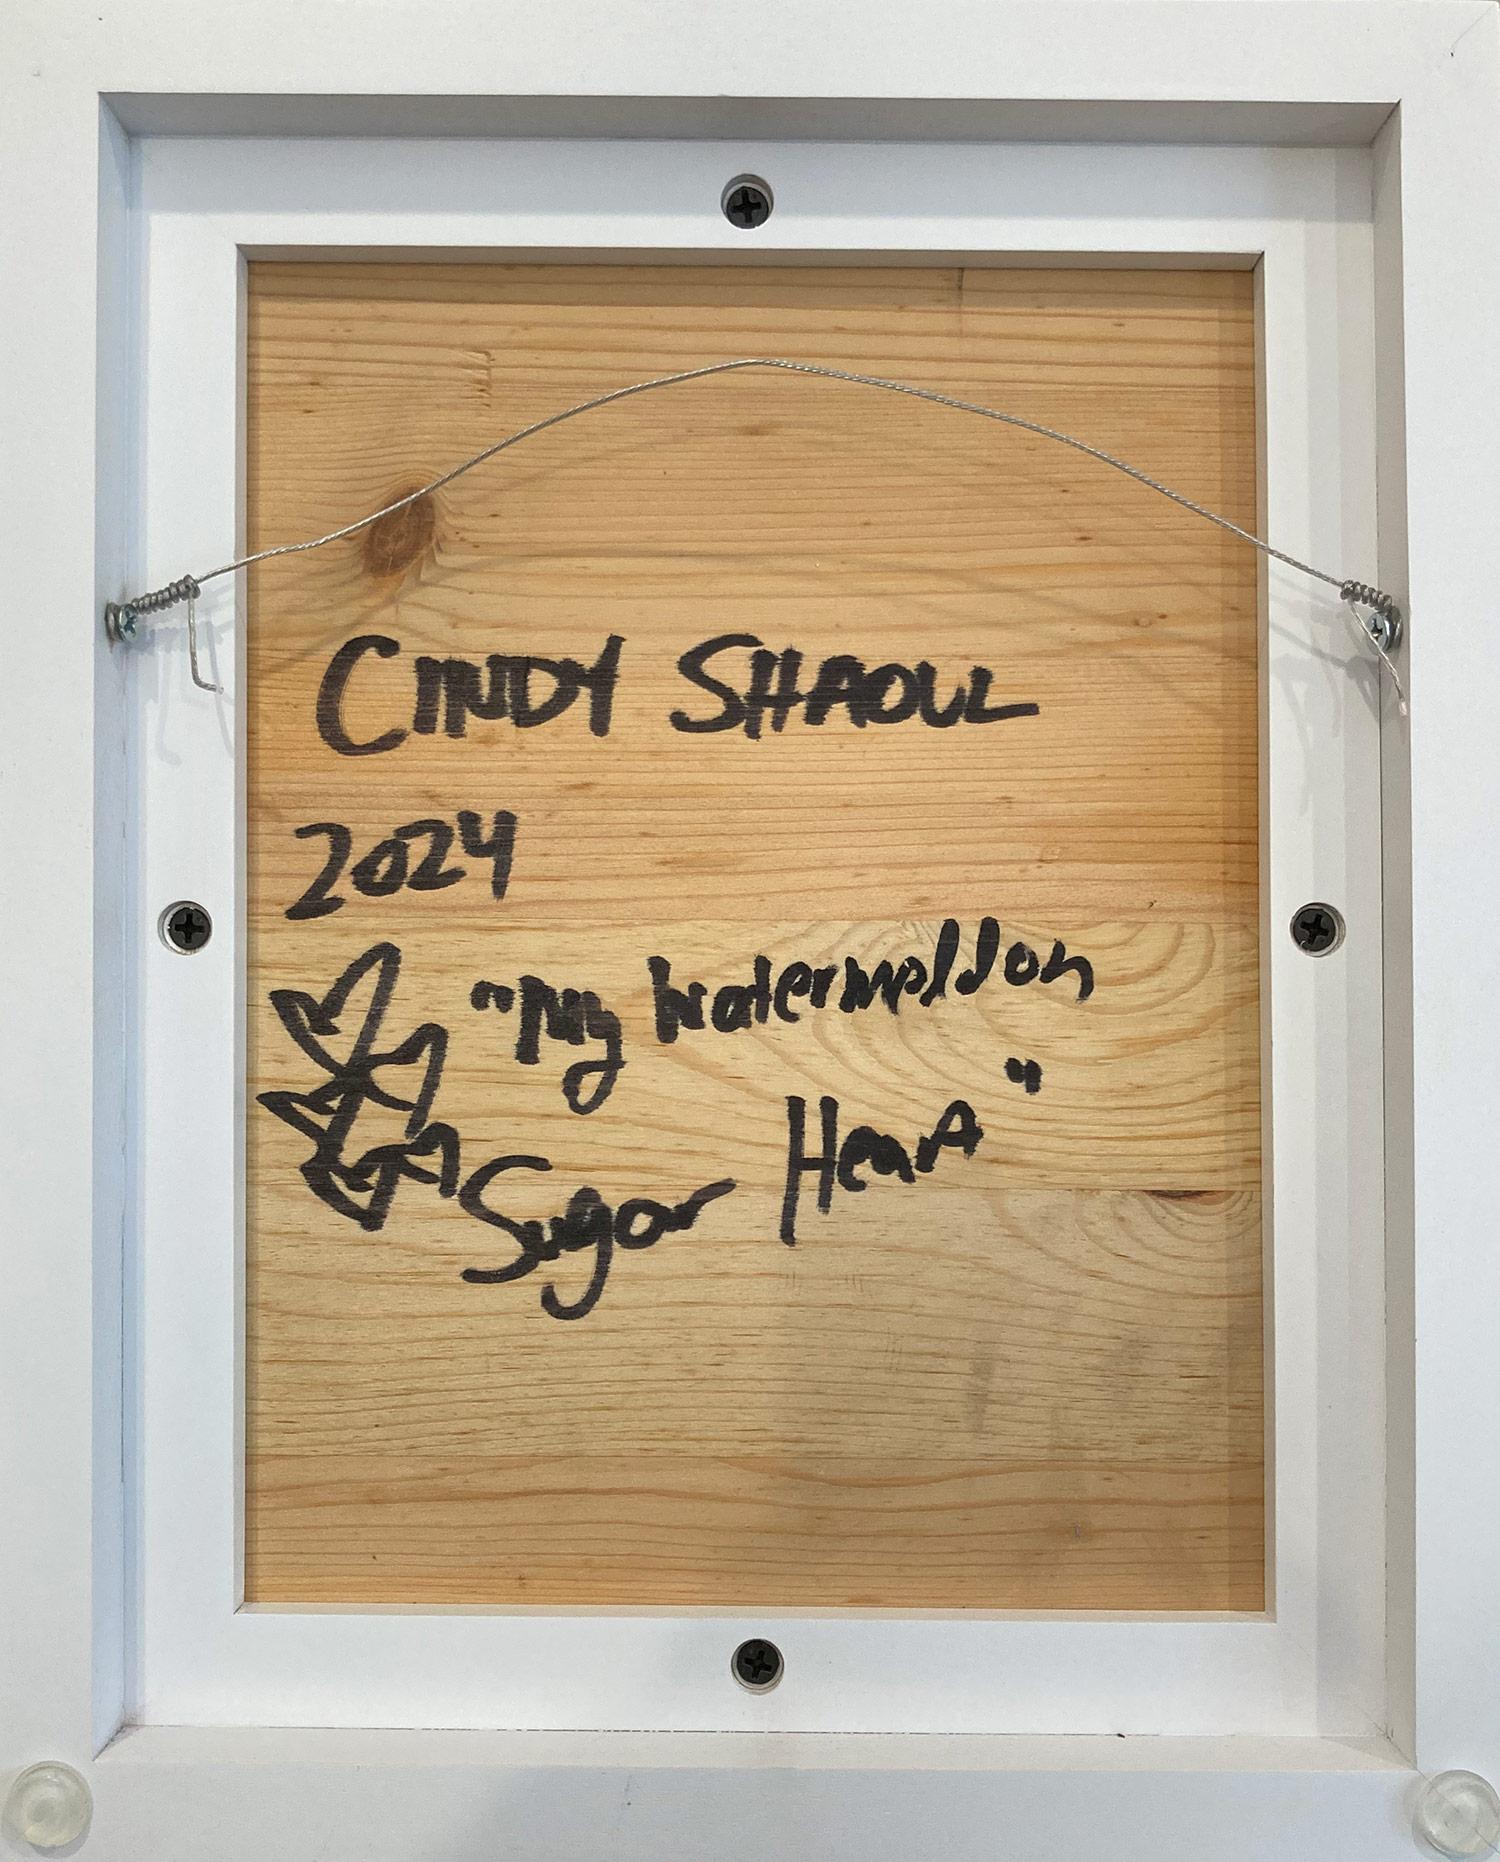 CINDY SHAOUL
2024
"My Watermeldon
Sugar Heart"